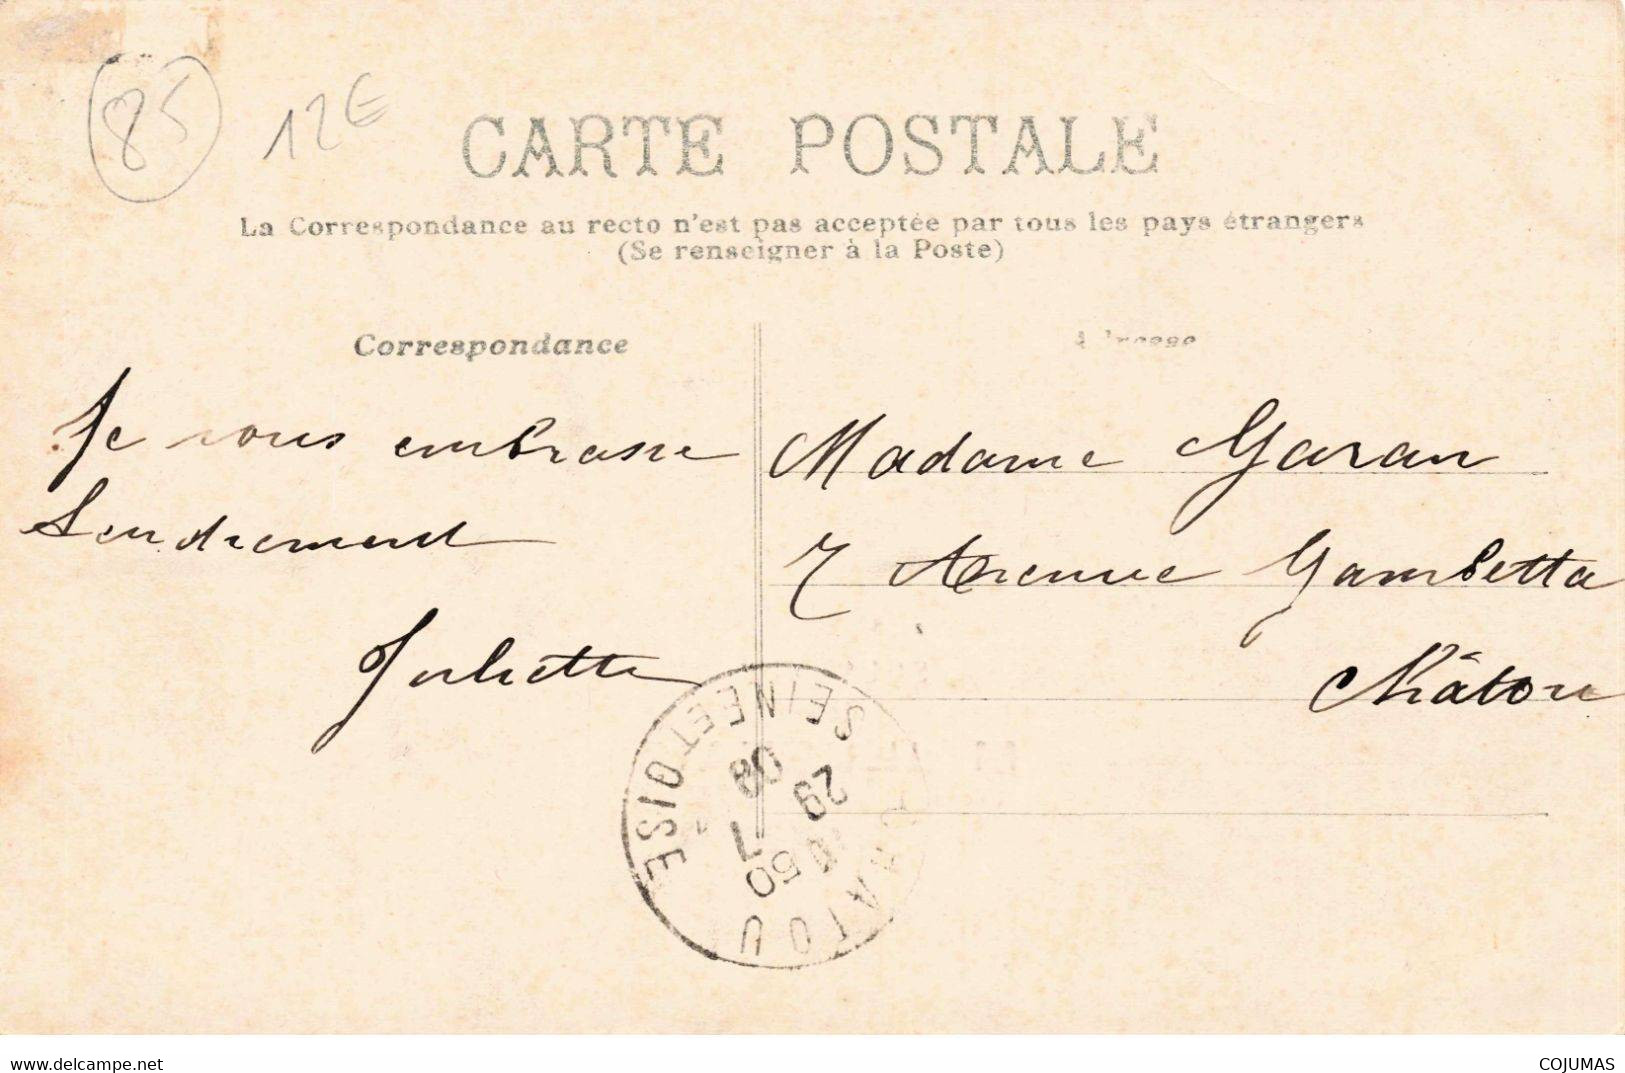 85
12€
CARTE POSTALE
La Correspondance au recto n'est pas acceptée par tous les pays étrangers
(Se renseigner à la Poste)
Correspondance
Adresse
Je vous embrasse
tendrement
Juliette
Madame Garan
7 Avenue Gambetta
Châtou
CHATOU
SEINE ET OISE
29
7
08
50
www.delcampe.net
COJUMAS